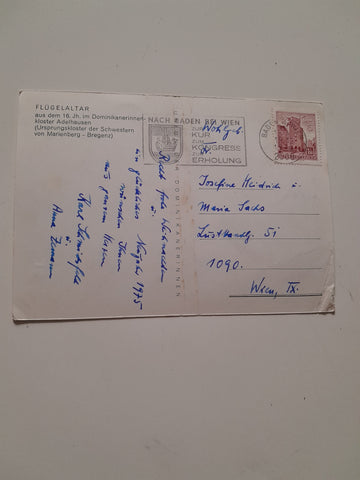 FLÜGELALTAR
aus dem 16. Jh. im Dominikanerinnen-
kloster Adelhausen
(Ursprungskloster der Schwestern
von Marienberg – Bregenz)
NACH BADEN BEI WIEN
ZUR
KUR
ZUM
KONGRESS
ZUR
ERHOLUNG
BADEN
DOMINIKANERINNEN
Recht frohe Weihnachten
u.
ein glückliches Neujahr 1975
wünschen Ihnen
aus ganzem Herzen
u.
Anna
Wohlg.
Josefine Heidrich u.
Maria Sachs
51
1090.
Wien, IX.